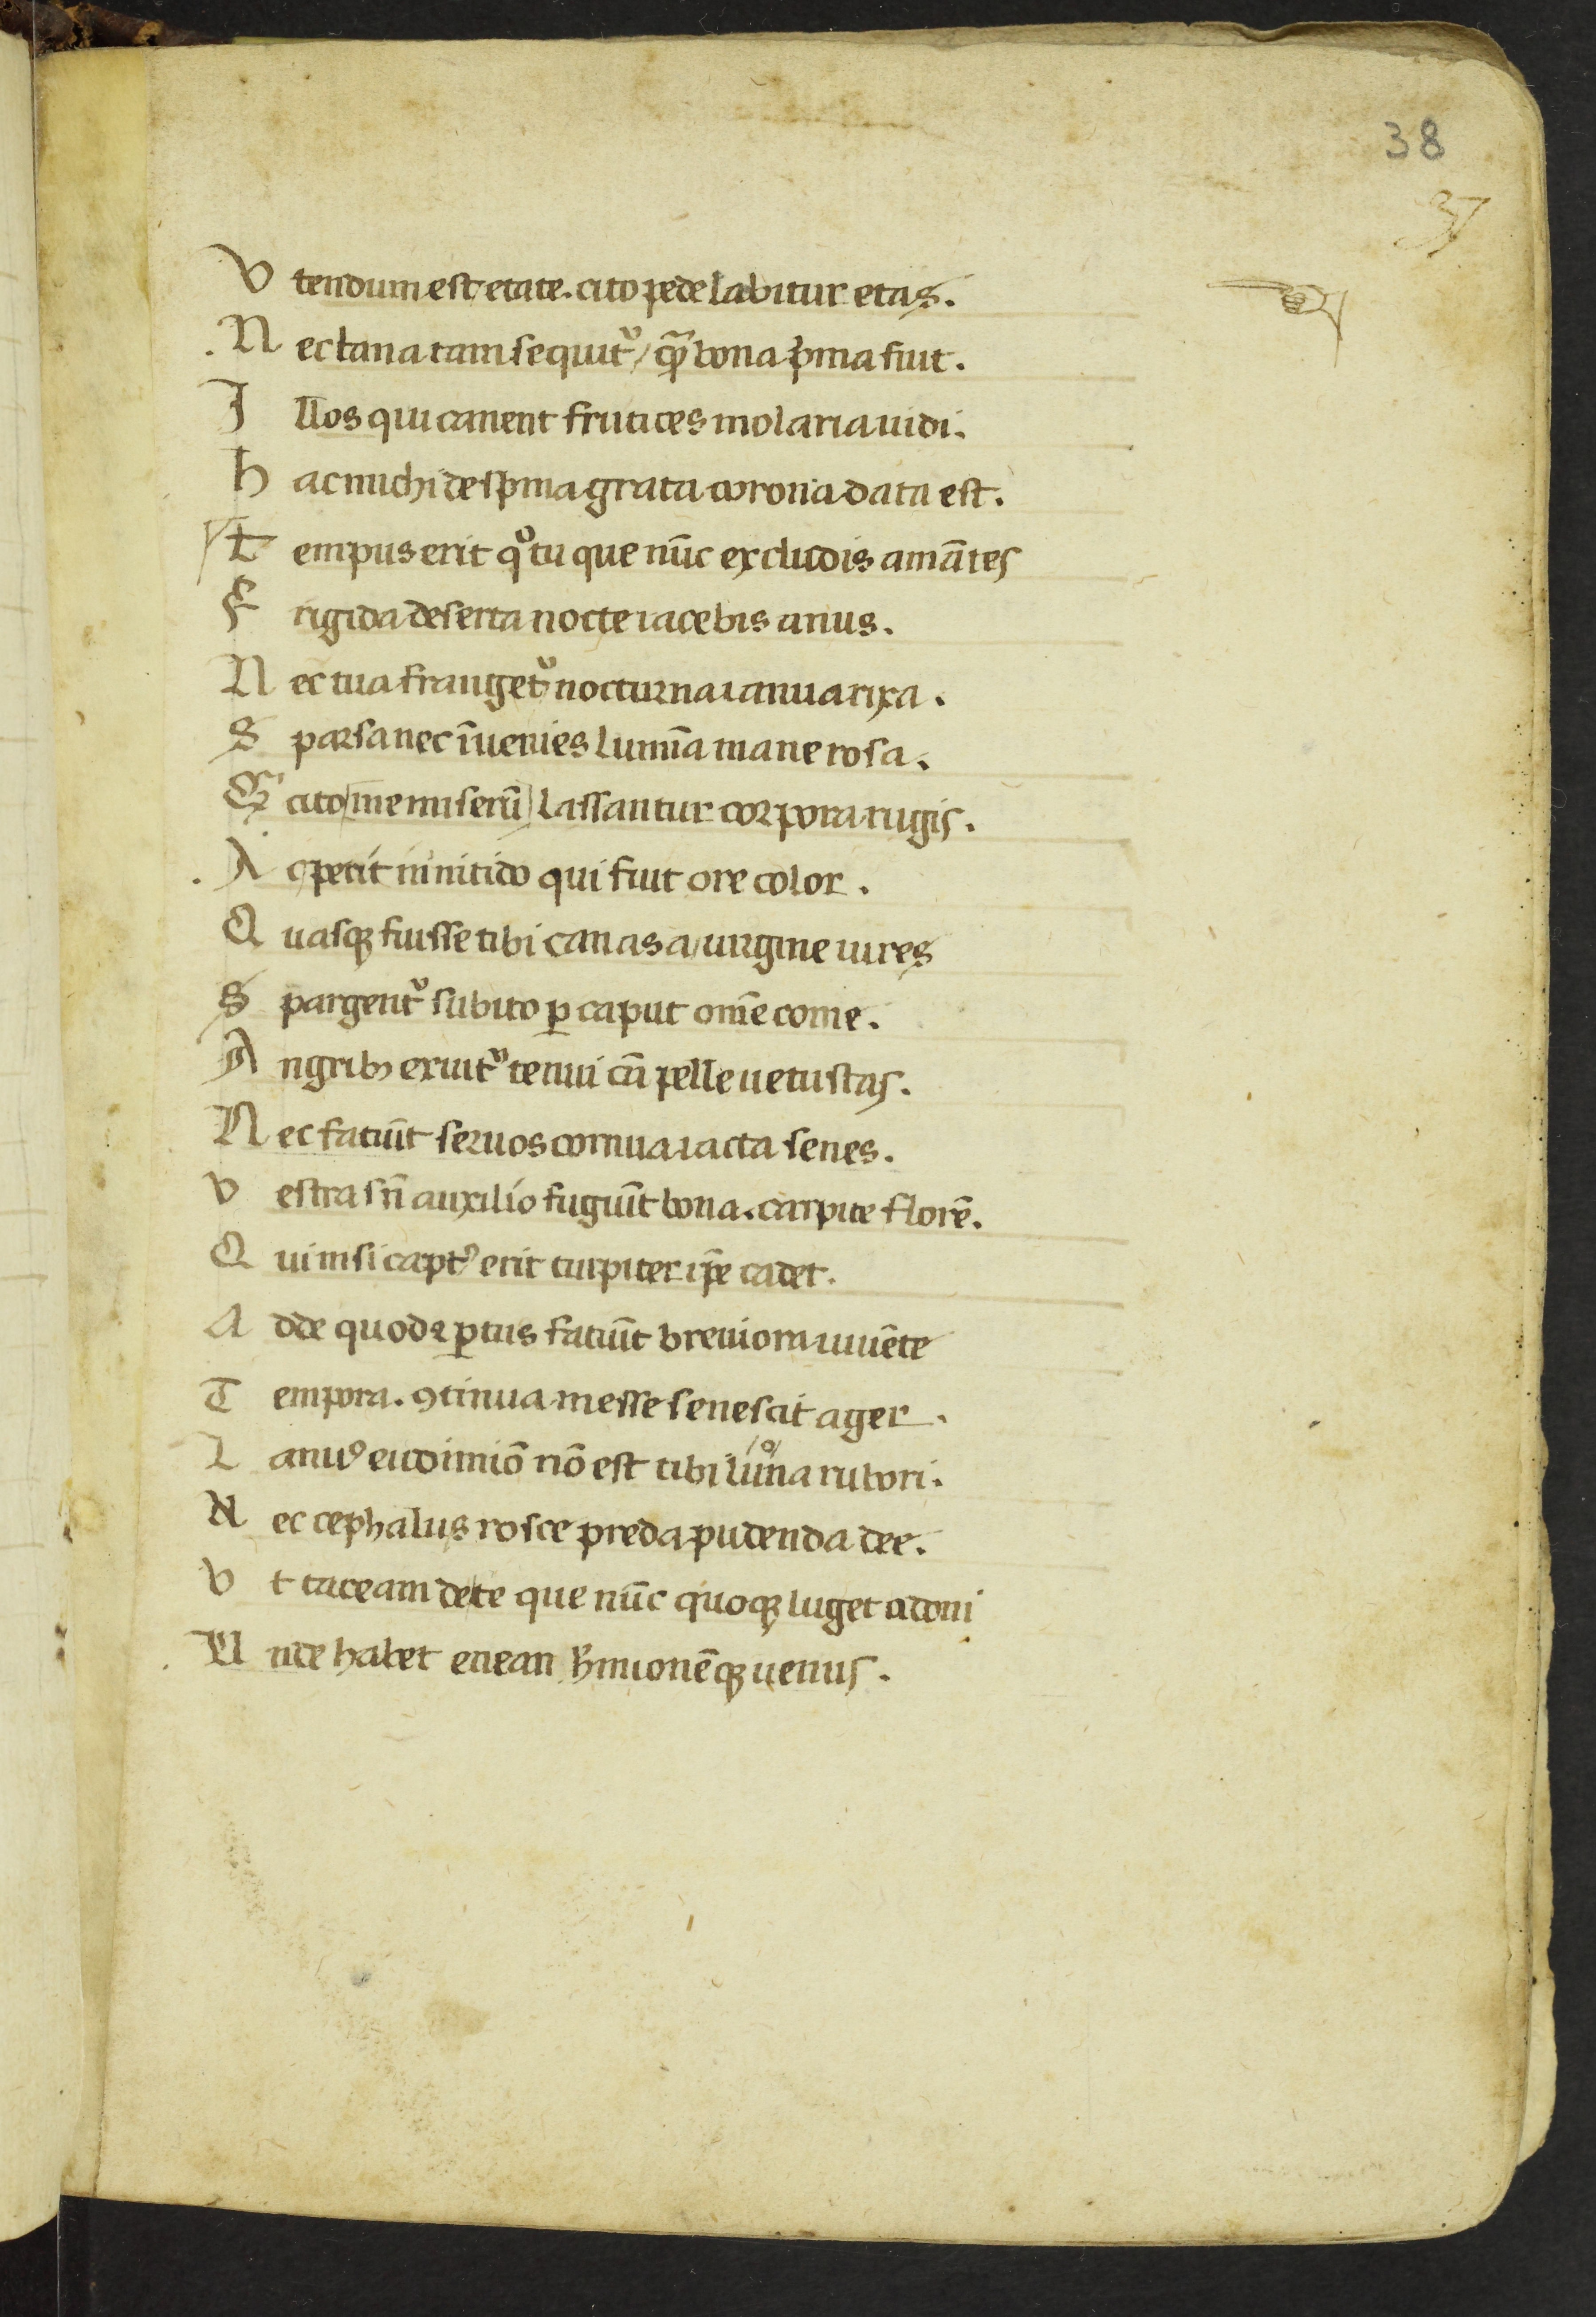 38
37
V tendum est etate. cito pede labitur etas.
N ec bana tam sequit᷑ / qᷓ bona p̾ma fuit.
I llos qui canent frutices molaria uidi.
h ac michi de sp̾ma grata corona data est.
T empus erit qͦ tu que nūc excludis amātes
F rigida deserta nocte iacebis anus.
N ec tua franget᷑ nocturna ianua rixa.
S parsa nec īuenies lumīa mane rosa.
Q̾ cito / me miserū / lassantur corpora rugis.
A c petit in nitido qui fuit ore color.
Q uasqꝫ fuisse tibi canas a uirgine iures
S pargent᷑ subito ꝑ caput om̄e come.
A ngribꝫ exuit᷑ tenui cū pelle uetustas.
N ec faciūt seruos cornua iacta senes.
V estra sn̄ auxilio fugiūt bona. carpite florē.
Q ui nisi captꝰ erit turpiter ip̄e cadet.
A dde quod ⁊ ꝑtus faciūt breuiora iuuēte
T empora. ꝯtinua messe senescit ager.
L anuꝰ endimiō nō est tibi luna rubori.
N ec cephalus rosce preda pudenda dee.
V t taceam de te que nūc quoqꝫ luget adoni
U nde habet enean h̾mionēqꝫ uenus.